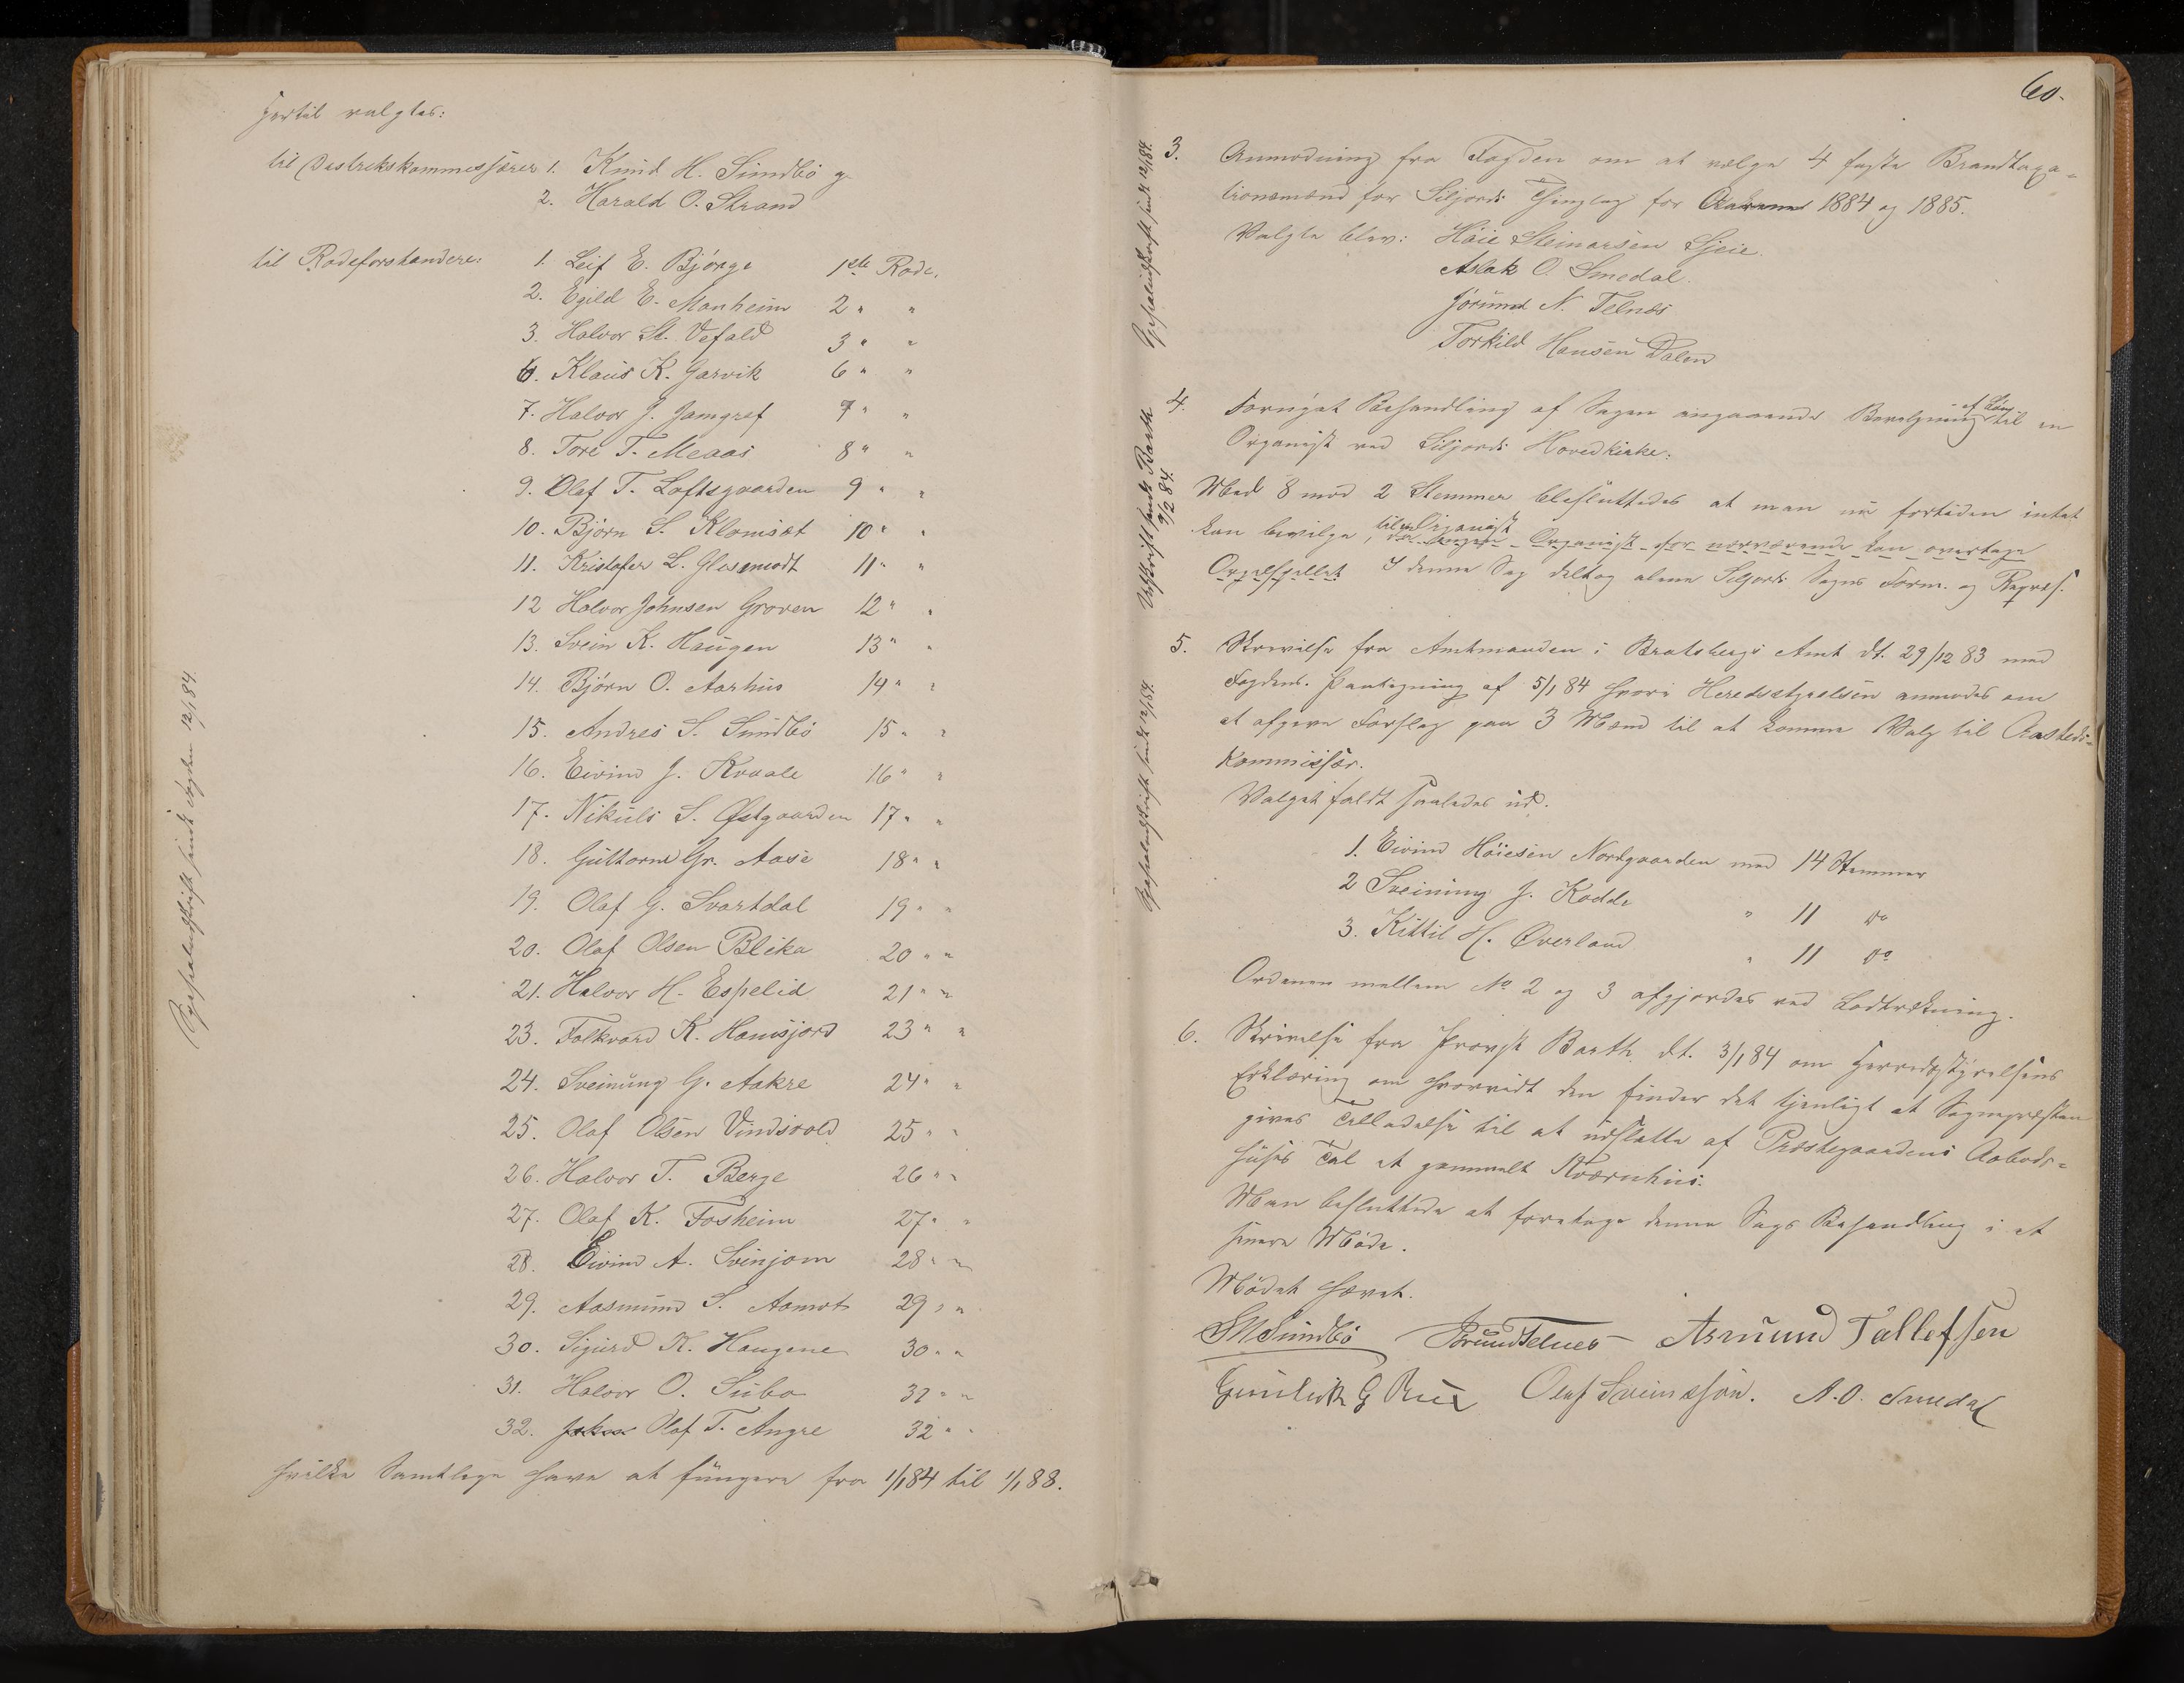 hertil valgtes:
til Destrikskommissærer 1. Knud H. Sundbö og
2. Harald O. Strand
til Rodeforstandere: 1. Leif E. Bjørge 1ste Rode.
2. Egild E. Manheim 2 " "
3. Halvor St. Vefald 3 " "
6. Klaus K. Garvik 6 " "
7. Halvor J. Jamgref 7 " "
8. Tore T. Meaas 8 " "
9. Olaf T. Loftsgaarden 9 " "
10. Bjørn S. Klomset 10 " "
11. Kristofer L. Glosemodt 11 " "
12 Halvor Johnsen Groven 12 " "
13. Svein K. Haugen 13 " "
14. Bjørn O. Aarhus 14 " "
15. Andres S. Sundbö 15 " "
16. Eivind J. Kvaale 16 " "
17. Nikuls S. Østgaarden 17 " "
18. Guttorm Gr. Aase 18 " "
19. Olaf G. Svartdal 19 " "
20. Olaf Olsen Bleka 20 " "
21. Halvor H. Espelid 21 " "
23. Folkvard K. Hamsjord 23 " "
24. Sveinung G. Aakre 24 " "
25. Olaf Olsen Vindsvold 25 " "
26. Halvor T. Berge 26 " "
27. Olaf K. Fosheim 27 " "
28. Eivind A. Svinjom 28 " "
29. Aasmund S. Aamot 29 " "
30. Sigurd K. Haugene 30 " "
31. Halvor O. Subø 31 " "
32. Olaf T. Angre 32 " "
hvilke Samtlige have at fungere fra 1/1 84 til 1/1 88.
Specialudskrift sendt Fogden 12/1 84.
60.
3. Anmodning fra Fogden om at vælge 4 faste Brandtaxa-
tionsmænd for Siljords Thinglag for Aarene 1884 og 1885.
Valgte blev: Høie Steinarsen Gjeie.
Aslak O. Smedal.
Jørund N. Telnes
Torkild Hansen Dalen
Specialudskrift sendt 12/1 84.
4. Fornyet Behandling af Sagen angaaende Bevilgning af Løn til en
Organist ved Siljords Hovedkirke:
Med 8 mod 2 Stemmer besluttedes at man nu fortiden intet
kan bevilge, til en Organist Organist for nærværende kan overtage
Orgelspillet I denne Sag deltog alene Siljords Sogns Form. og Repræs.
Udskrift sendt Barth 9/2 84.
5. Skrivelse fra Amtmanden i Bratsbergs Amt dt. 29/12 83 med
Fogdens Paategning af 5/1 84 hvori Heredsstyrelsen anmodes om
at afgive Forslag paa 3 Mænd til at komme Valg til Aasteds-
kommissær.
Valget faldt saaledes ud:
1. Eivind Høiesen Nordgaarden med 14 Stemmer
2 Sveinung J. Kodde " 11 do
3. Kittil H. Øverland " 11 do
Ordenen mellem No 2 og 3 afgjordes ved Lodtrækning.
Specialudskrift sendt 12/1 84.
6. Skrivelse fra Provst Barth dt. 3/1 84 om Herredsstyrelsens
Erklæring om hvorvidt den finder det tjenligt at Sognepresten
gives Tilladelse til at udslette af Præstegaardens Aabods-
huses Tal et gammelt Kværnhus.
Man besluttede at foretage denne Sags Behandling i et
senere Møde.
Mødet hævet.
Sundbö Jørund Telnes Asmund Tallefsen
Gunleik G Olaf Sveinssøn. A. O. Smedal